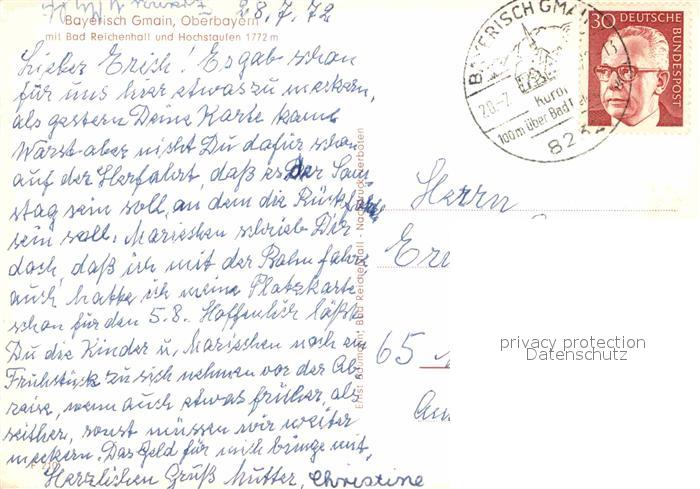 28.7.72
Bayerisch Gmain, Oberbayern
mit Bad Reichenhall und Hochstaufen 1772 m
Lieber Erich! Es gab schon
für uns hier etwas zu meckern,
als gestern Deine Karte kam.
Warst aber nicht Du dafür schon
auf der Herfahrt, daß es der Sams
tag sein soll, an dem die Rückfahrt
sein soll. Marieschen schrieb Dir
doch, daß ich mit der Bahn fahre
auch hatte ich meine Platzkarte
schon für den 5.8. Hoffentlich läßt
Du die Kinder u. Marieschen noch ein
Frühstück zu sich nehmen vor der Ab
reise, wenn auch etwas früher, als
seither, sonst müssen wir weiter
meckern. Das Geld für mich bringe mit.
Herzlichen Gruß Mutter, Christine
Ernst Baumann, Bad Reichenhall - Nachdruck verboten
BAYERISCH GMAIN
28.-7.
Kuror
100m über Bad Rei
823
30 DEUTSCHE
BUNDESPOST
Herrn
Eri
65
Am
privacy protection
Datenschutz